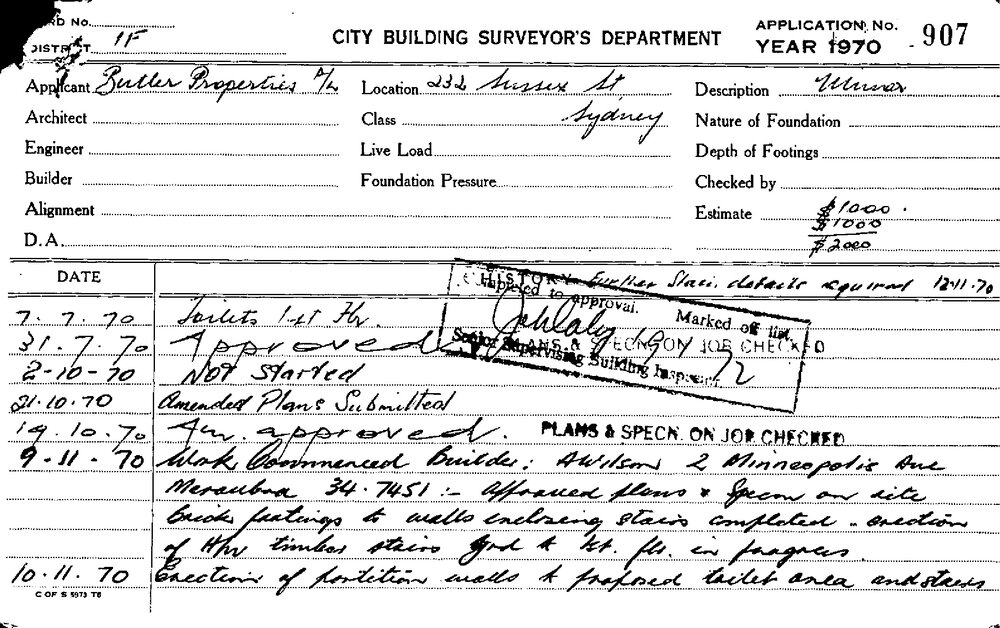 RD No.
DISTRICT 1F
CITY BUILDING SURVEYOR'S DEPARTMENT
APPLICATION No. 907
YEAR 1970
Applicant Butler Properties P/L
Location 232 Sussex St
Sydney
Description Minor
Architect
Class
Nature of Foundation
Engineer
Live Load
Depth of Footings
Builder
Foundation Pressure
Checked by
Alignment
Estimate $1000.
$1000
$2000
D.A.
DATE
HISTORY
Further Stair details required 12.11.70
Completed to approval.
Marked off list
Senior Supervising Building Inspector
PLANS & SPECN. ON JOB CHECKED
7.7.70 Toilets 1st Flr.
31.7.70 Approved.
2-10-70 Not Started
21.10.70 Amended Plans Submitted
19.10.70 Am. approved. PLANS & SPECN. ON JOB CHECKED
9-11-70 Work Commenced Builder: A Wilson 2 Minneapolis Ave
Maroubra 34.7451 :- Approved plans & Specn on site
brick footings to walls enclosing stairs completed - erection
of timber stairs Grd to 1st. flr. in progress.
10.11.70 Erection of partition walls to proposed toilet area and stairs
C OF S 5973 T6